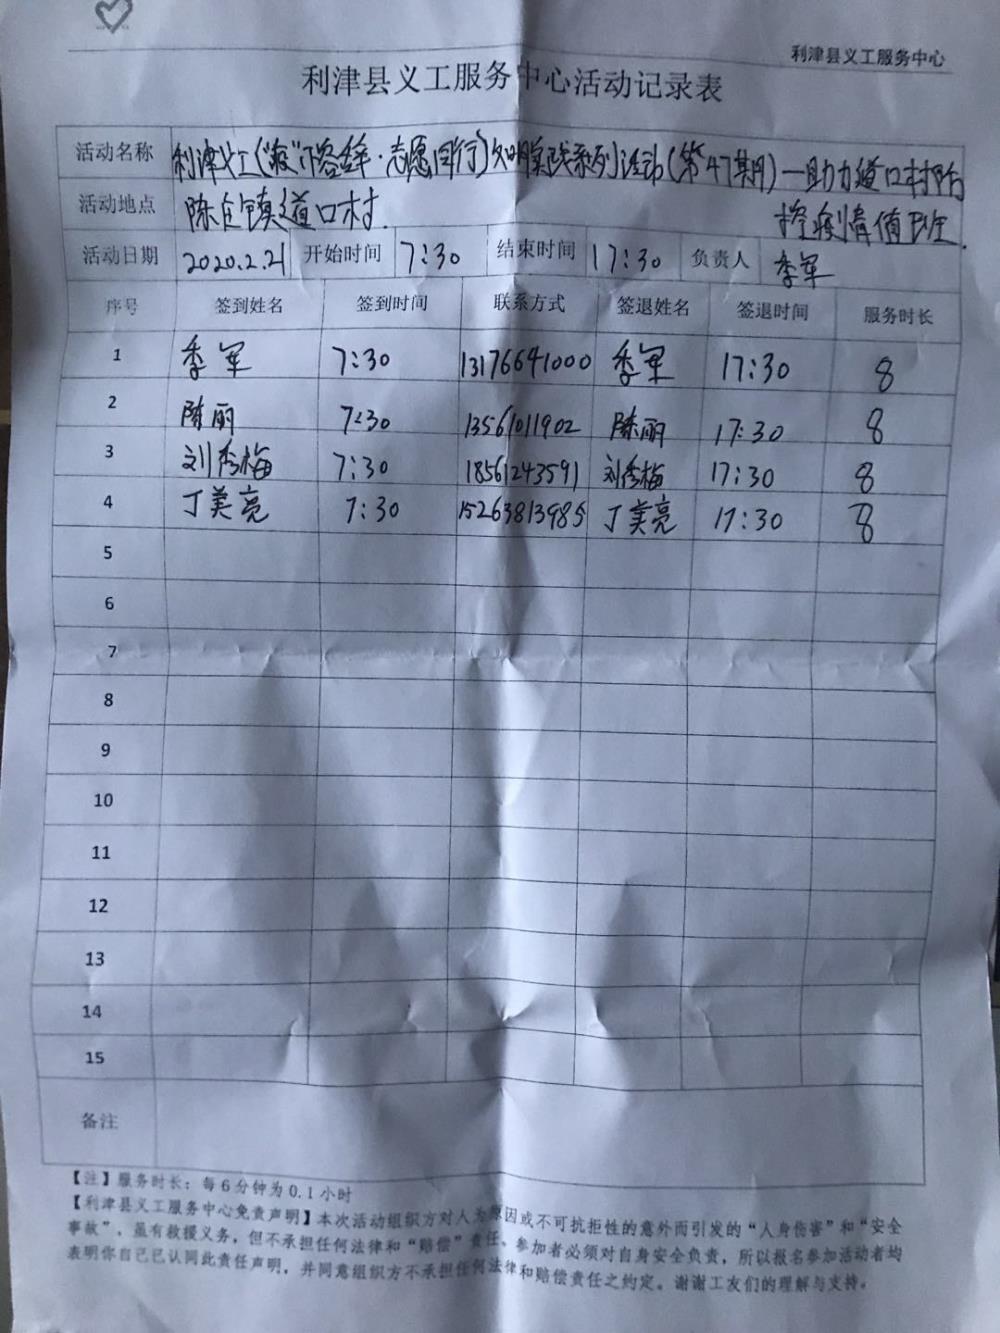 利津县义工服务中心
利津县义工服务中心活动记录表
活动名称 利津义工("疫"不容辞·志愿同行)文明实践系列活动(第47期)—助力道口村防
控疫情值班.
活动地点 陈庄镇道口村.
活动日期 2020.2.21 开始时间 7:30 结束时间 17:30 负责人 季军
序号 签到姓名 签到时间 联系方式 签退姓名 签退时间 服务时长
1 季军 7:30 13176641000 季军 17:30 8
2 陈丽 7:30 13561011902 陈丽 17:30 8
3 刘秀梅 7:30 18561243591 刘秀梅 17:30 8
4 丁美亮 7:30 15263813985 丁美亮 17:30 8
5
6
7
8
9
10
11
12
13
14
15
备注
【注】服务时长：每6分钟为0.1小时
【利津县义工服务中心免责声明】本次活动组织方对人为原因或不可抗拒性的意外而引发的“人身伤害”和“安全
事故”，虽有救援义务，但不承担任何法律和“赔偿”责任。参加者必须对自身安全负责，所以报名参加活动者均
表明你自己已认同此责任声明，并同意组织方不承担任何法律和赔偿责任之约定。谢谢工友们的理解与支持。